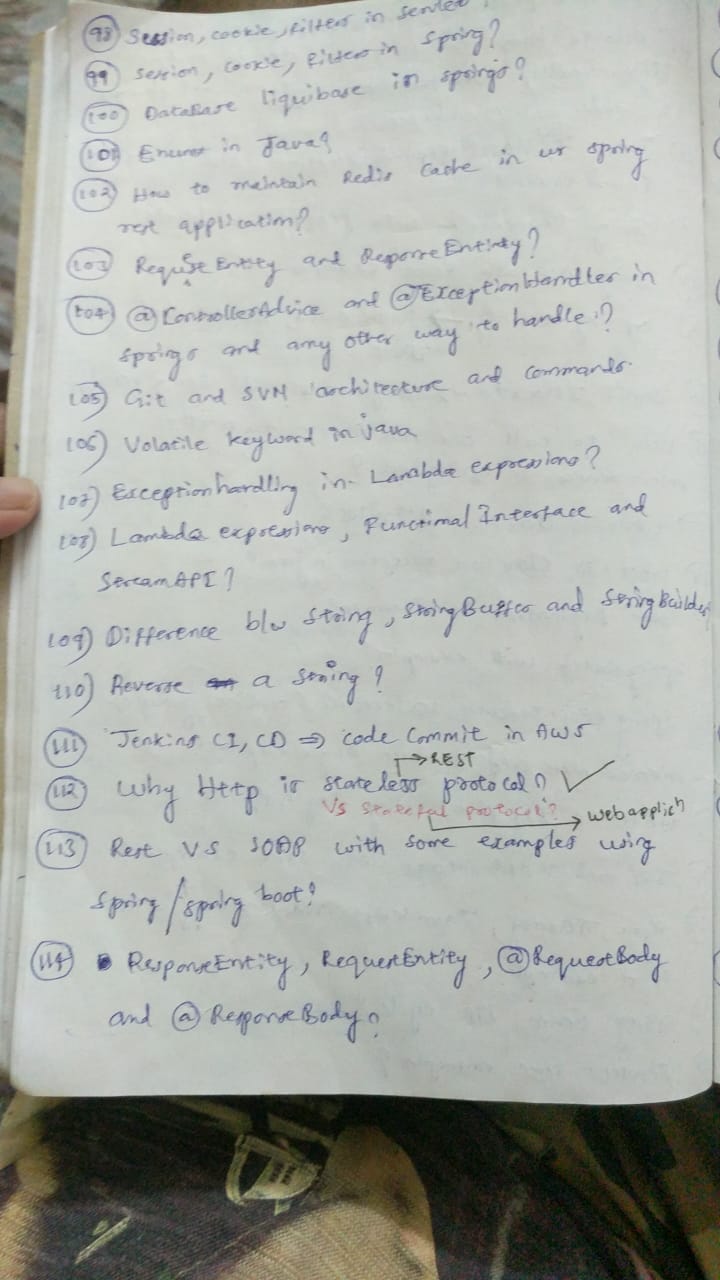 98) Session, cookie, Filters in servlet?
99) Session, cookie, Filters in Spring?
100) DataBase liquibase in springs?
101) Enums in Java?
102) How to maintain Redis Cache in ur spring
rest application?
103) RequestEntity and ResponseEntity?
104) @ControllerAdvice and @ExceptionHandler in
springs and any other way to handle?
105) Git and SVN architecture and commands.
106) Volatile keyword in java
107) Exception handling in Lambda expressions?
108) Lambda expressions, Functional Interface and
Stream API?
109) Difference b/w String, StringBuffer and StringBuilder
110) Reverse a string?
111 Jenkins CI, CD ⇒ code Commit in AWS
→ REST
112 Why Http is stateless protocol? ✓
Vs stateful protocol? → web applicn
113 Rest VS SOAP with some examples using
Spring/spring boot?
114 ResponseEntity, RequestEntity, @RequestBody
and @ResponseBody?